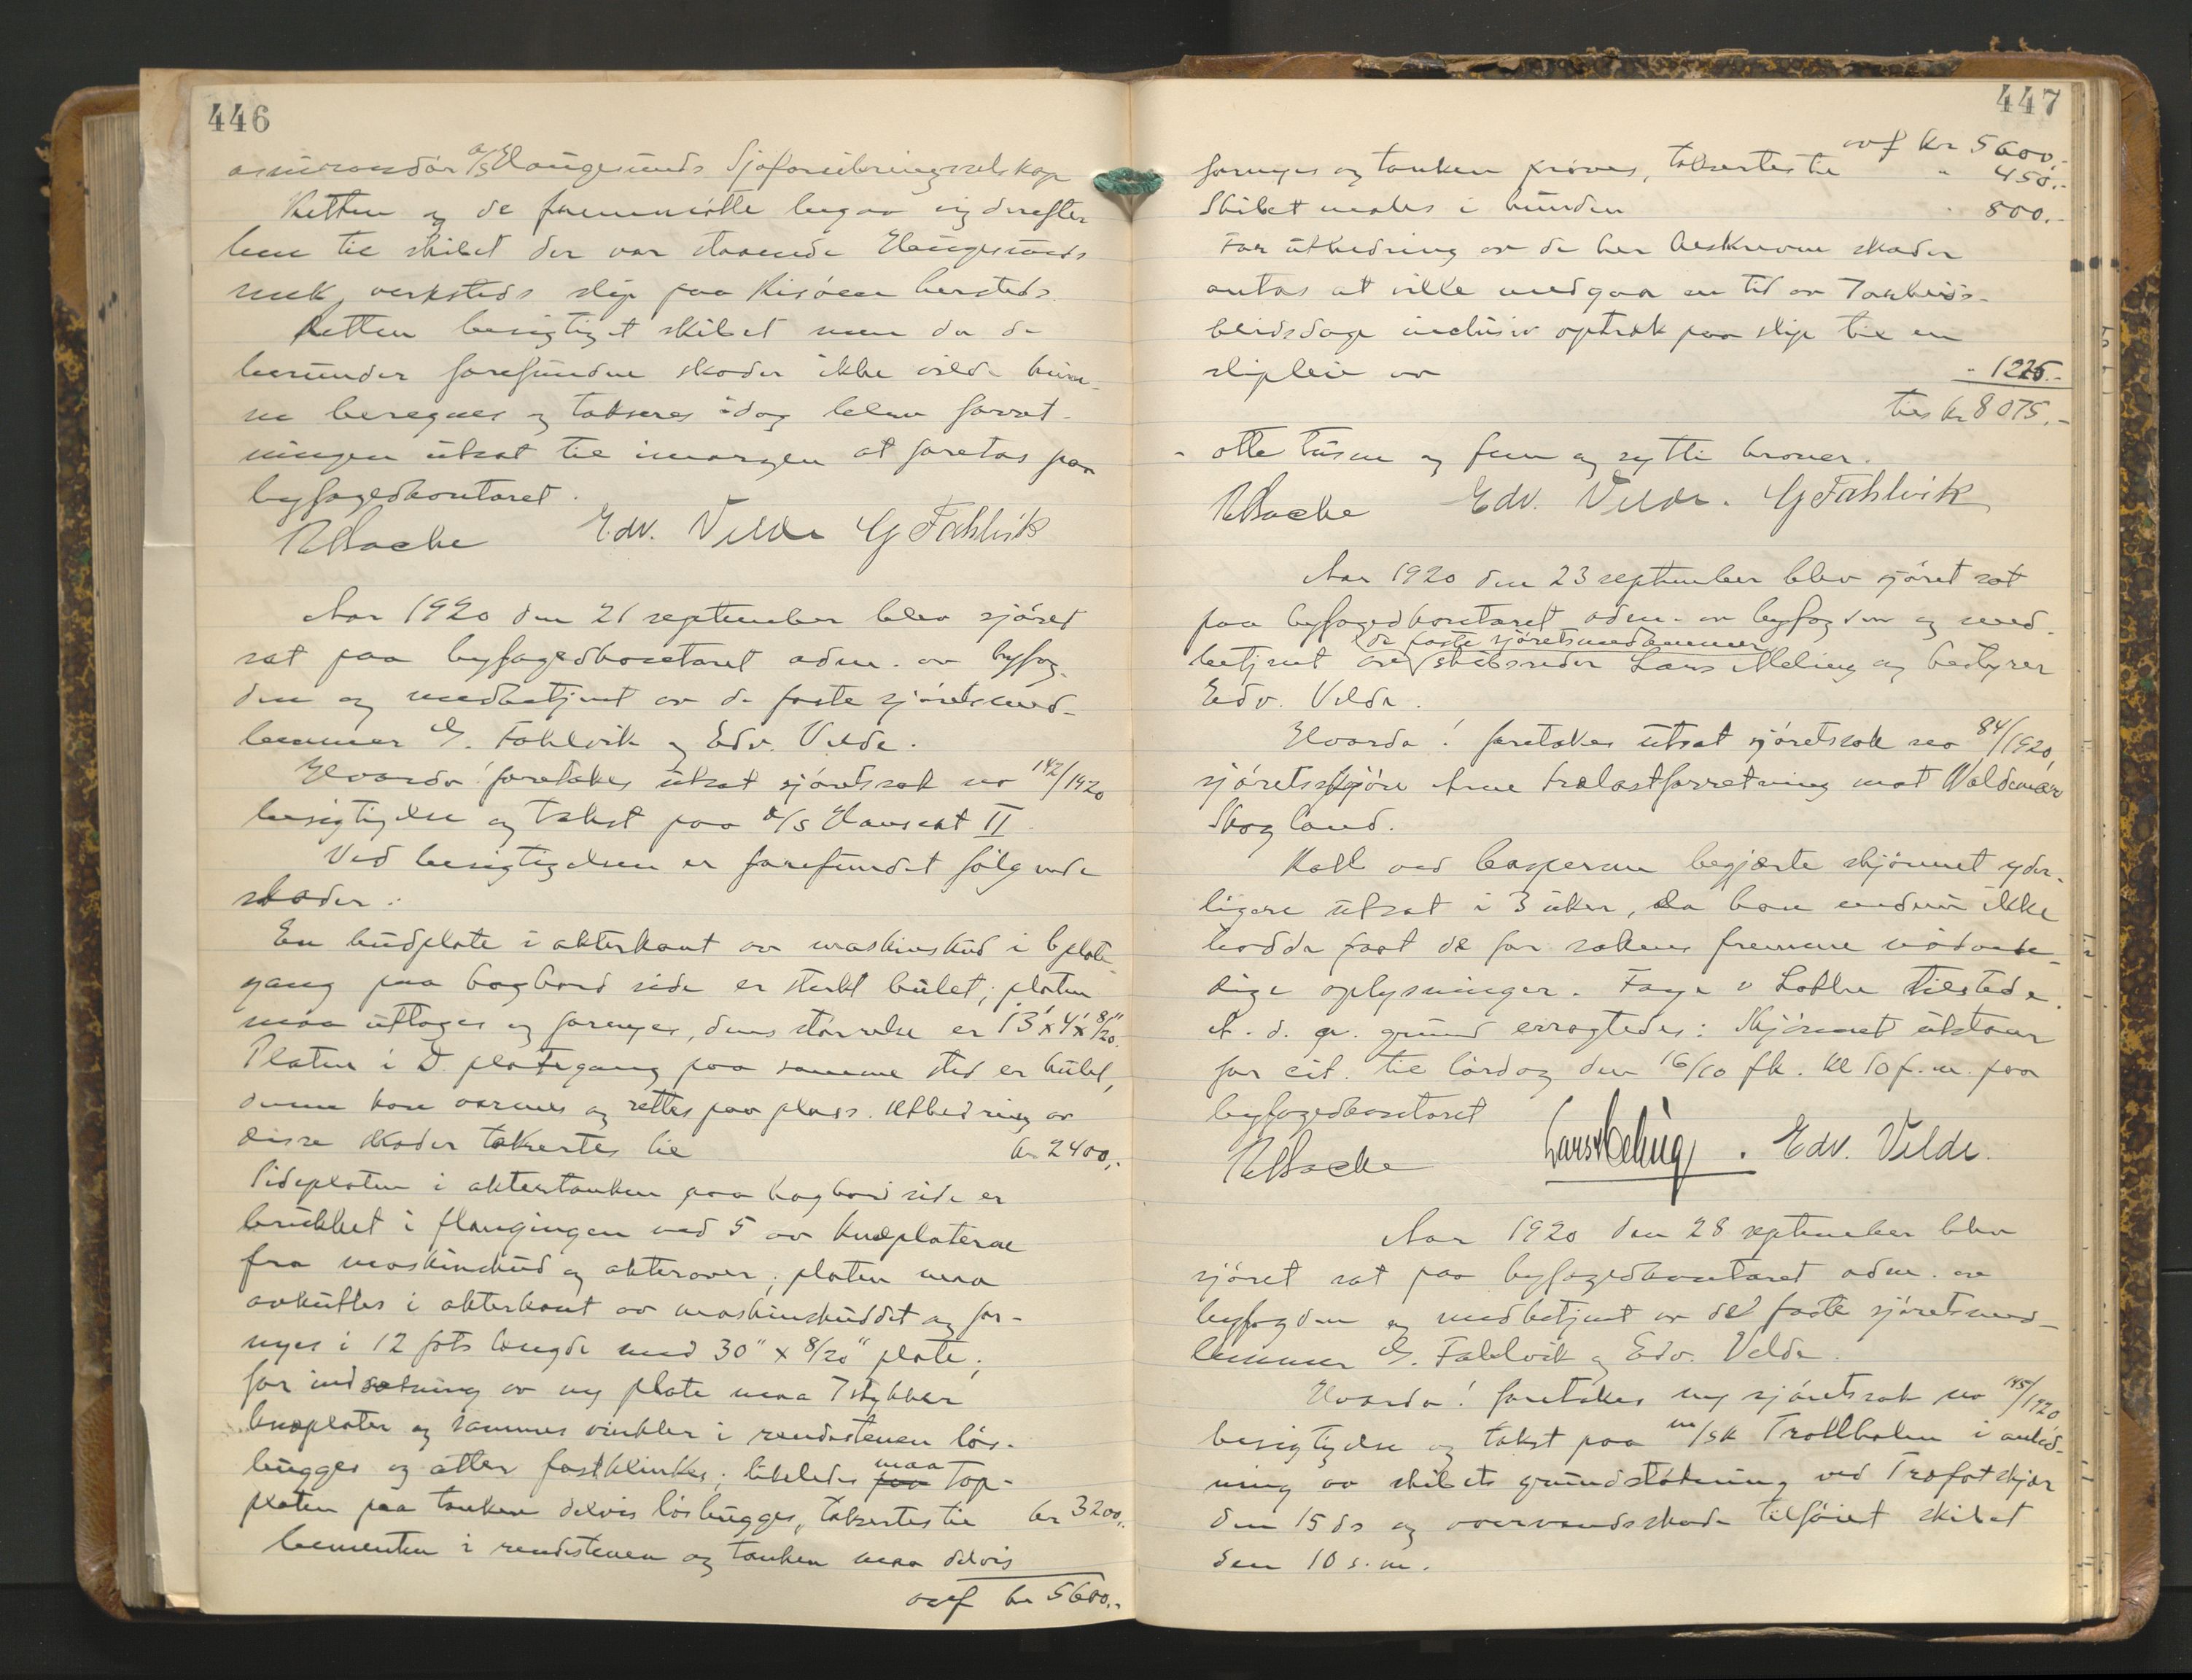 446
assurandør A/S Haugesunds Sjøforsikringsselskap
Retten og de fremmøtte begav sig derefter
hen til skibet der var staaende Haugesunds
mek. verksteds slip paa Risøen hersteds.
Retten besigtiget skibet men da de
herunder forefundne skader ikke vilde kun-
ne beregnes og takseres idag blev forret-
ningen utsat til imorgen at foretas paa
byfogedkontoret.
Edv. Velde G Fahlvik
Aar 1920 den 21 september blev sjøret
sat paa byfogedkontoret adm. av byfog-
den og medbetjent av de faste sjøretsmed-
lemmer G. Fahlvik og Edv. Velde.
Hvorda! foretokes utsat sjøretssak no 142/1920
besigtigelse og takst paa D/S Hanseat II.
Ved besigtigelsen er forefundet følgende
skader:
En hudplate i akterkant av maskinskud i C plate-
gang paa bagbord side er sterkt bulet, platen
maa uttages og fornyes, dens størrelse er 13' x 4' x 8/20".
Platen i D plategang paa samme sted er bulet,
denne kan varmes og rettes paa plass. Utbedring av
disse skader takseres til kr 2400,-
Sideplaten i aktertanken paa bagbord side er
brukket i flangingen ved 5 av knæplaterne
fra maskinskud og akterover, platen maa
avkuttes i akterkant av maskinskuddet og for-
nyes i 12 fots længde med 30" x 8/20" plate,
for indsætning av ny plate maa 7 stykker
knæplater og sammes vinkler i rendestenen løs-
hugges og atter fastklinkes, likeledes maa top-
platen paa tanken delvis løshugges, takseres til kr 3200,-
Cementen i rendestenen og tanken maa delvis
ovf kr 5600,-
447
ovf kr 5600,-
fornyes og tanken prøves, takseres til " 450,-
Skibet males i bunden " 800,-
For utbedring av de her beskrevne skader
antas at ville medgaa en tid av 7 arbeids-
beidsdage inclusiv optræk paa slip til en
slipleie av - 1225,-
tils kr 8075,-
- otte tusen og fem og sytti kroner.
Edv. Velde. G Fahlvik
Aar 1920 den 23 september blev sjøret sat
paa byfogedkontoret adm. av byfogden og med-
de faste sjøretsmedlemmer
betjent av skibsreder Lars Meling og bestyrer
Edv. Velde.
Hvorda! foretokes utsat sjøretssak no 84/1920,
sjøretsskjøn Arne trælastforretning mot Valdemar
Skogland.
Koll ved Caspersen begjærte skjønnet yder-
ligere utsat i 3 uker, da han endnu ikke
hadde faat de for sakens fremme nødven-
dige oplysninger. Faye v Lothe tilstede.
A. d. a. grund eragtedes: Skjønnet utstaar
for eit. til lørdag den 16/10 fk. kl 10 f.m. paa
byfogedkontoret
Lars Meling. Edv. Velde.
Aar 1920 den 28 september blev
sjøret sat paa byfogedkontoret adm. av
byfogden og medbetjent av de faste sjøretsmed-
lemmer G. Fahlvik og Edv. Velde.
Hvorda! foretokes ny sjøretssak no 145/1920
besigtigelse og takst paa m/sk Trollholm i anled-
ning av skibets grundstøtning ved Træfotskjær
den 15 ds og overvandsskade tilføiet skibet
den 10 s.m.